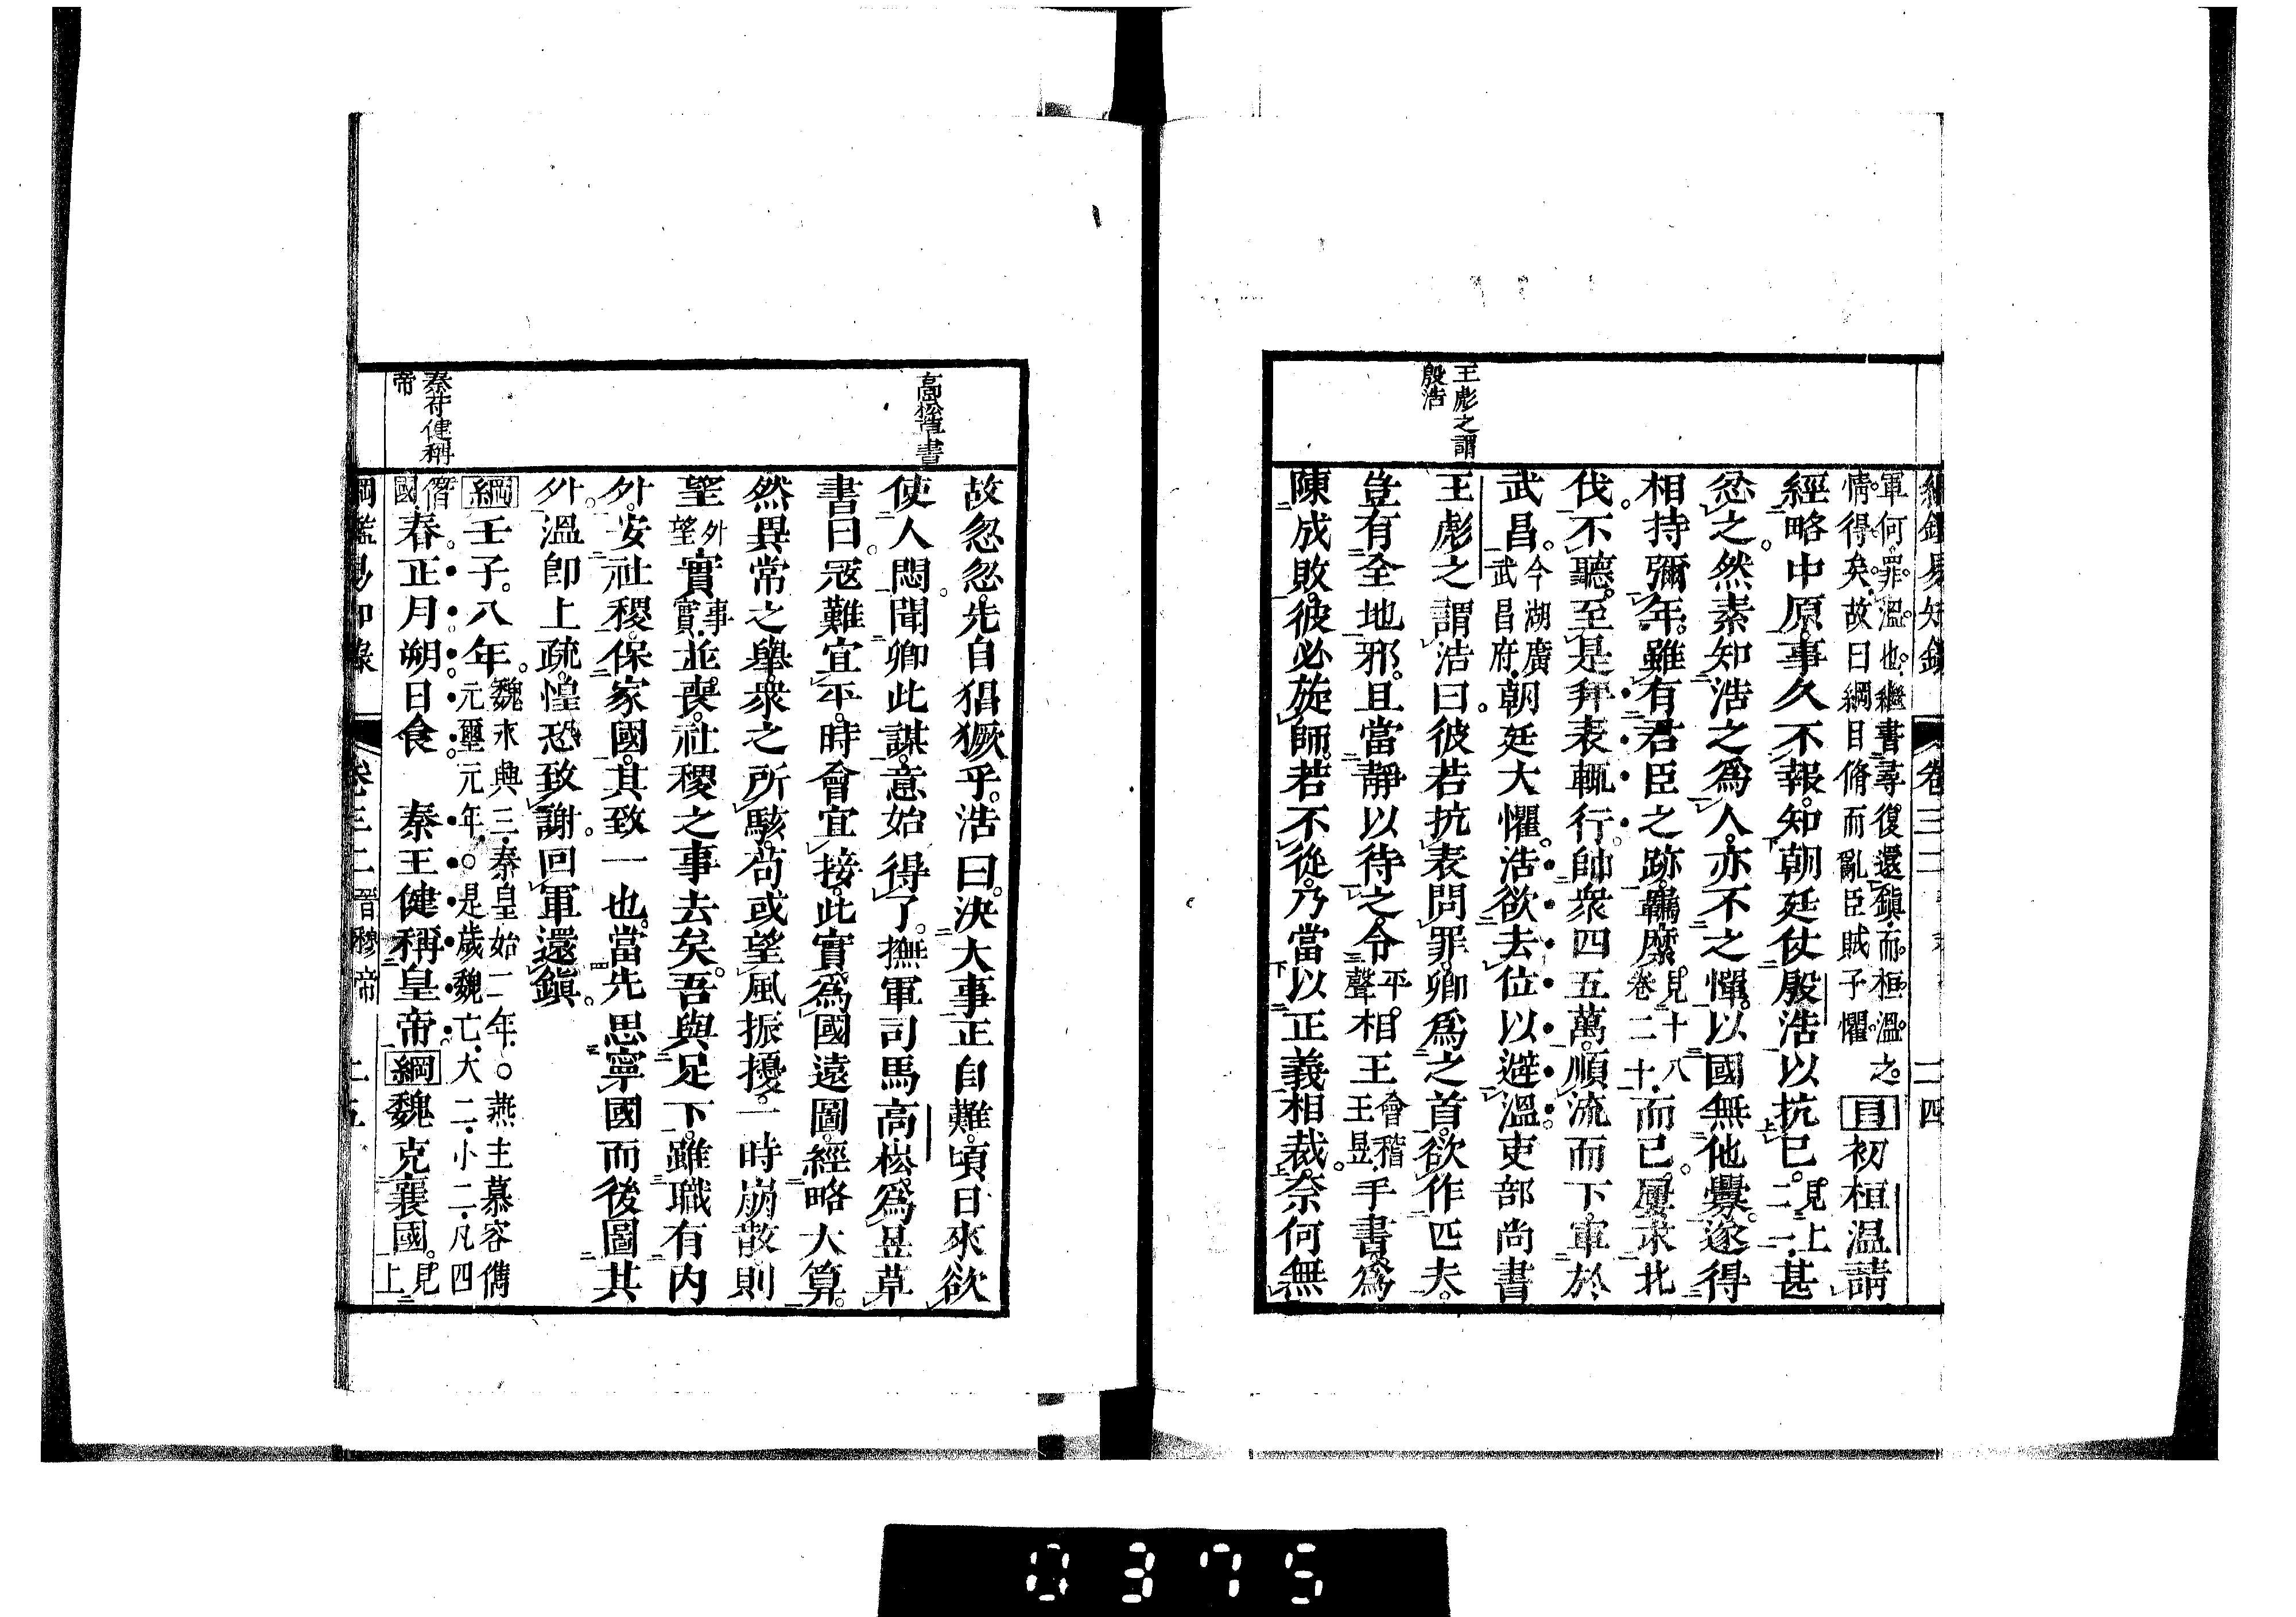 綱鑑易知錄 卷三二 二四
王彪之謂
殷浩
軍何罪溫也繼書尋復還鎮而桓溫之
情得矣故曰綱目脩而亂臣賊子懼 目初桓温請
經略中原事久不報知朝廷仗殷浩以抗已見上二二甚
忿之然素知浩之爲人亦不之憚以國無他釁遂得
相持彌年雖有君臣之跡羈縻見十八卷二十而已屢求北
伐不聽至是拜表輒行帥衆四五萬順流而下軍於
武昌今湖廣武昌府朝廷大懼浩欲去位以避溫吏部尚書
王彪之謂浩曰彼若抗表問罪卿爲之首欲作匹夫
豈有全地邪且當靜以待之令平聲相王會稽王昱手書爲
陳成敗彼必旋師若不從乃當以正義相裁奈何無
高崧草書
秦苻健稱
帝
故忽忽先自猖獗乎浩曰決大事正自難頃日來欲
使人悶聞卿此謀意始得了撫軍司馬高崧爲昱草
書曰冦難宜平時會宜接此實爲國遠圖經略大算
然異常之舉衆之所駭苟或望風振擾一時崩散則
望外望實事實並喪社稷之事去矣吾與足下雖職有內
外安社稷保家國其致一也當先思寧國而後圖其
外溫卽上疏惶恐致謝回軍還鎮
綱壬子八年魏永興三秦皇始二年○燕主慕容儁元璽元年○是歲魏亡大二小二凡四
僭國春正月朔日食 秦王健稱皇帝 綱魏克襄國見上二
綱鑑易知錄 卷三二 晉穆帝 二五
0375